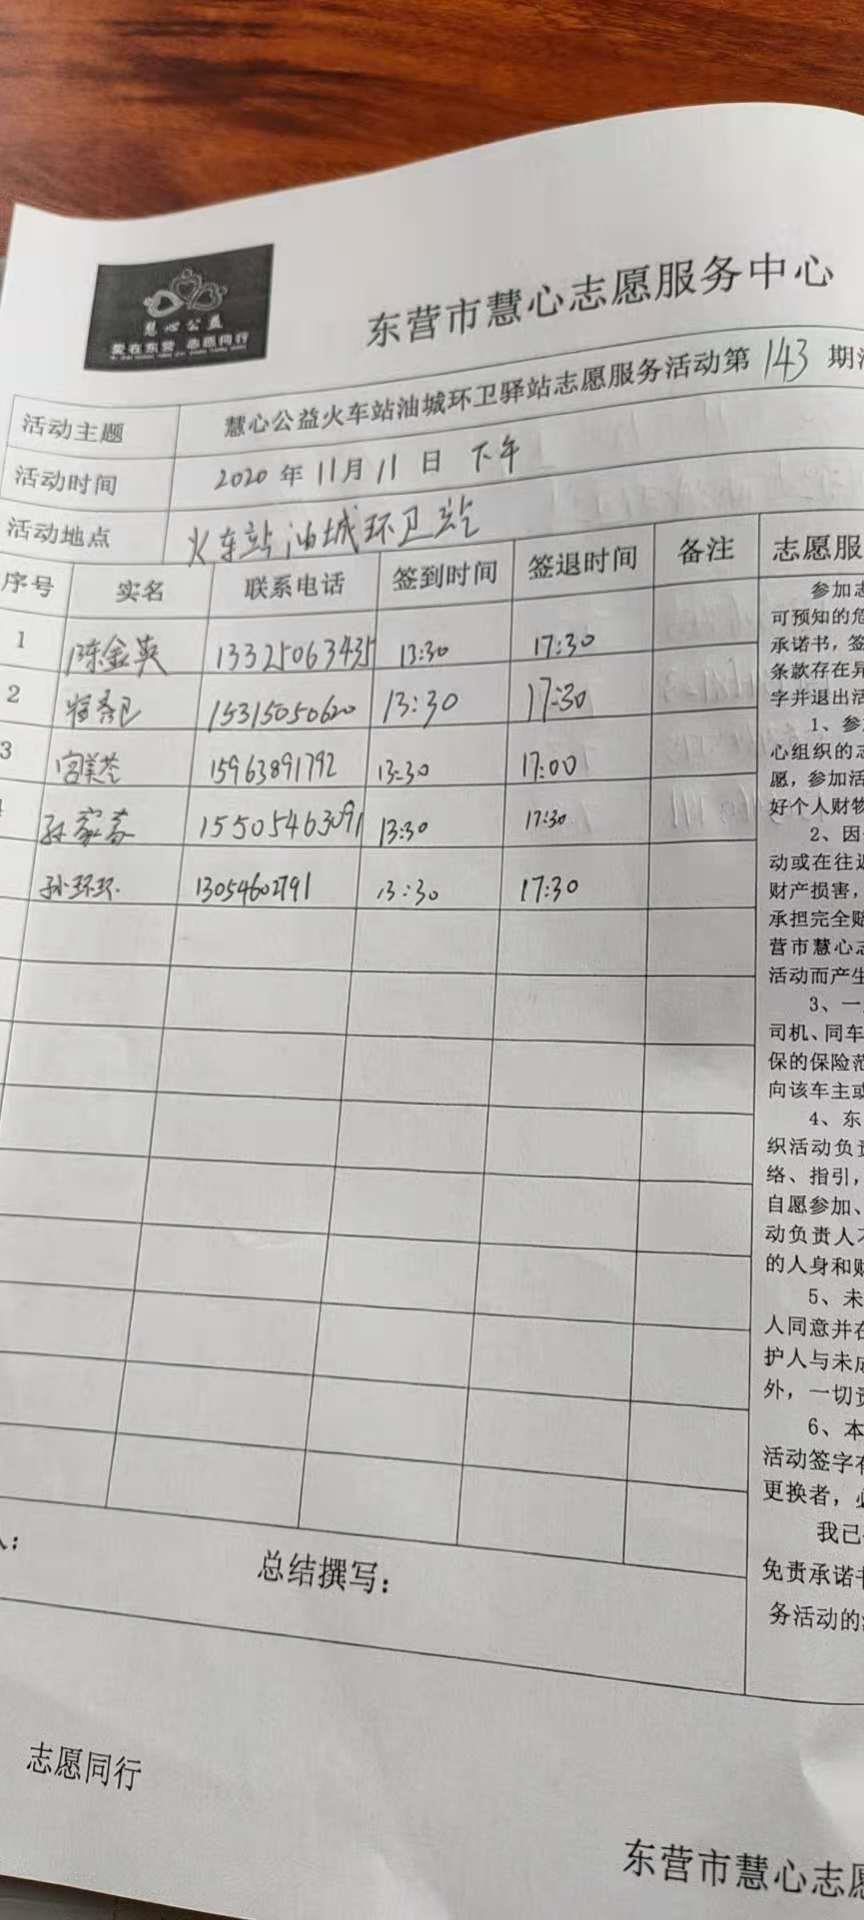 慧心公益
爱在东营 志愿同行
东营市慧心志愿服务中心
活动主题 慧心公益火车站油城环卫驿站志愿服务活动第143期
活动时间 2020年11月11日 下午
活动地点 火车站油城环卫站
序号 实名 联系电话 签到时间 签退时间 备注 志愿服
1 陈金英 13325063435 13:30 17:30
2 15315050620 13:30 17:30
3 15963891792 13:30 17:00
孙家 15505463091 13:30 17:30
孙环环 13054602791 13:30 17:30
参加志
可预知的危
承诺书，签
条款存在异
字并退出活
1、参
心组织的志
愿，参加活
好个人财物
2、因
动或在往返
财产损害，
承担完全赔
营市慧心志
活动而产生
3、一
司机、同车
保的保险范
向该车主或
4、东
织活动负责
络、指引，
自愿参加、
动负责人不
的人身和财
5、未
人同意并在
护人与未成
外，一切责
6、本
活动签字有
更换者，必
我已
免责承诺书
务活动的
人： 总结撰写：
志愿同行
东营市慧心志愿